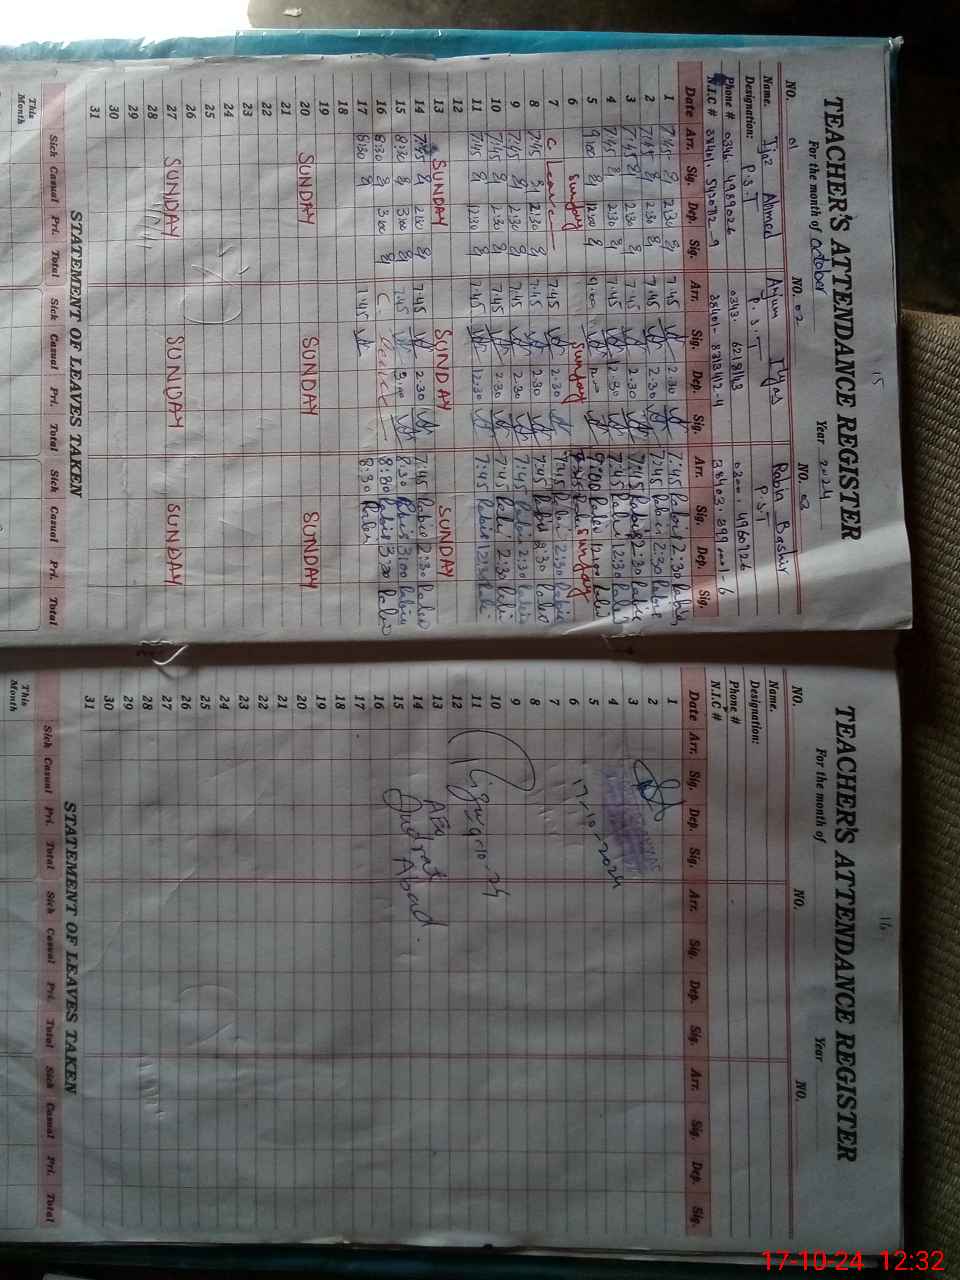 15
TEACHER'S ATTENDANCE REGISTER
For the month of October Year 2024
NO. 01 NO. 02 NO. 03
Name. Ijaz Ahmed Anjum Ilyas Rabia Bashir
Designation: P.S.T P.S.T P.S.T
Phone # 0346 4989026 0343.
N.I.C #
Date Arr. Sig. Dep. Sig. Arr. Sig. Dep. Sig. Arr. Sig. Dep. Sig.
1 7:45 2:30 7:45 2:30 7:45 Rabia 2:30 Rabia
2 7:45 2:30 7:45 2:30 7:45 Rabia 2:30 Rabia
3 7:45 2:30 7:45 2:30 7:45 Rabia 2:30 Rabia
4 7:45 2:30 7:45 2:30 7:45 Rabia 2:30 Rabia
5 9:00 12:00 9:00 12:00 9:00 Rabia 12:00 Rabia
6 Sunday Sunday Sunday
7 C Leave 7:45 2:30 7:45 Rabia 2:30 Rabia
8 7:45 2:30 7:45 2:30 7:45 Rabia 2:30 Rabia
9 7:45 2:30 7:45 2:30 7:45 Rabia 2:30 Rabia
10 7:45 2:30 7:45 2:30 7:45 Rabia 2:30 Rabia
11 7:45 12:30 7:45 12:30 7:45 Rabia 12:30
12
13 SUNDAY SUNDAY SUNDAY
14 7:45 2:30 7:45 2:30 7:45 Rabia 2:30 Rabia
15 8:30 3:00 7:45 3:00 8:30 Rabia 3:00 Rabia
16 8:30 3:00 C. Leave 8:30 Rabia 3:30 Rabia
17 8:30 8:30 Rabia
18
19
20 SUNDAY SUNDAY SUNDAY
21
22
23
24
25
26
27 SUNDAY SUNDAY SUNDAY
28
29
30
31
STATEMENT OF LEAVES TAKEN
Sick Casual Pri. Total Sick Casual Pri. Total Sick Casual Pri. Total
This Month
16
TEACHER'S ATTENDANCE REGISTER
For the month of Year
NO. NO. NO.
Name.
Designation:
Phone #
N.I.C #
Date Arr. Sig. Dep. Sig. Arr. Sig. Dep. Sig. Arr. Sig. Dep. Sig.
1
2
3
4
5 17-10-2024
6
7
8
9
10
11
12
13 AEO
14 Qudrat Abad
15
16
17
18
19
20
21
22
23
24
25
26
27
28
29
30
31
STATEMENT OF LEAVES TAKEN
Sick Casual Pri. Total Sick Casual Pri. Total Sick Casual Pri. Total
This Month
17-10-24 12:32